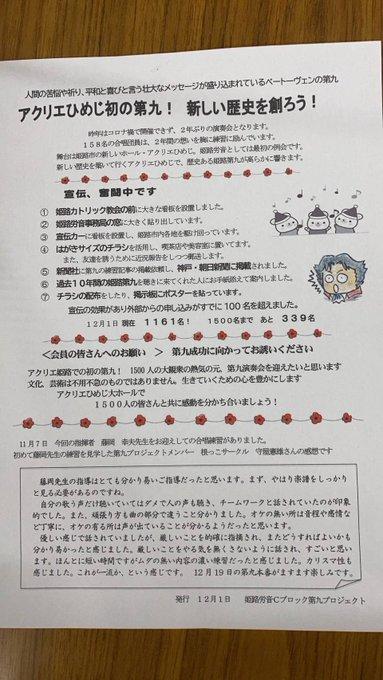 人間の苦悩や祈り、平和と喜びと言う壮大なメッセージが盛り込まれているベートーヴェンの第九
アクリエひめじ初の第九！ 新しい歴史を創ろう！
昨年はコロナ禍で開催できず、2年ぶりの演奏会となります。
158名の合唱団員は、2年間の想いを胸に練習に励んでいます。
舞台は姫路市の新しいホール・アクリエひめじ。姫路労音としては最初の例会です。
新しい歴史を築いて行くアクリエひめじで、歴史ある姫路第九が高らかに響きます。
宣伝、奮闘中です
① 姫路カトリック教会の前に大きな看板を設置しました。
② 姫路労音事務局の窓に大きく貼り出しています。
③ 宣伝カーに看板を設置し、姫路市内各地を駆け回っています。
④ はがきサイズのチラシを活用し、喫茶店や美容室に置いてます。
また、友達を誘うために近況報告をしつつ郵送します。
⑤ 新聞社に第九の練習記事の掲載依頼し、神戸・朝日新聞に掲載されました。
⑥ 過去10年間の姫路第九を聴きに来てくれた人にお手紙添えて案内しました。
⑦ チラシの配布をしたり、掲示板にポスターを貼っています。
宣伝の効果があり外部からの申し込みがすでに100名を超えました。
12月1日 現在 1161名！ 1500名まで あと 339名
＜会員の皆さんへのお願い＞ 第九成功に向かってお誘いください
アクリエ姫路での初の第九！ 1500人の大観衆の熱気の元、第九演奏会を迎えたいと思います
文化、芸術は不用不急のものではありません。生きていくための心を豊かにします
アクリエひめじ大ホールで
1500人の皆さんと共に感動を分かち合いましょう！
11月7日 今回の指揮者 藤岡 幸夫先生をお迎えしての合唱練習がありました。
初めて藤岡先生の練習を見学した第九プロジェクトメンバー 根っこサークル 守屋憲雄さんの感想です
藤岡先生の指導はとても分かり易いご指導だったと思います。まず、やはり楽譜をしっかり
と見る必要があるのですね。
自分の歌う声だけ聴いていてはダメで人の声も聴き、チームワークと話されていたのが印象
的でした。また、頑張り方も曲の部分で違うこと分りました。オケの無い所は音程や感情な
ど丁寧に、オケの有る所は声が出ていることが分かるようだったと思います。
優しい感じで話されていましたが、厳しいことを的確に指摘され、またどうすればよいかも
分かり易かったと感じました。厳しいことをやる気を無くさないように話され、すごいと思い
ます。ほんとに短い時間ですがムダの無い内容の濃い練習だったと感じました。カリスマ性も
感じました。これが一流か、という感じです。 12月19日の第九本番がますます楽しみです。
発行 12月1日 姫路労音Cブロック第九プロジェクト